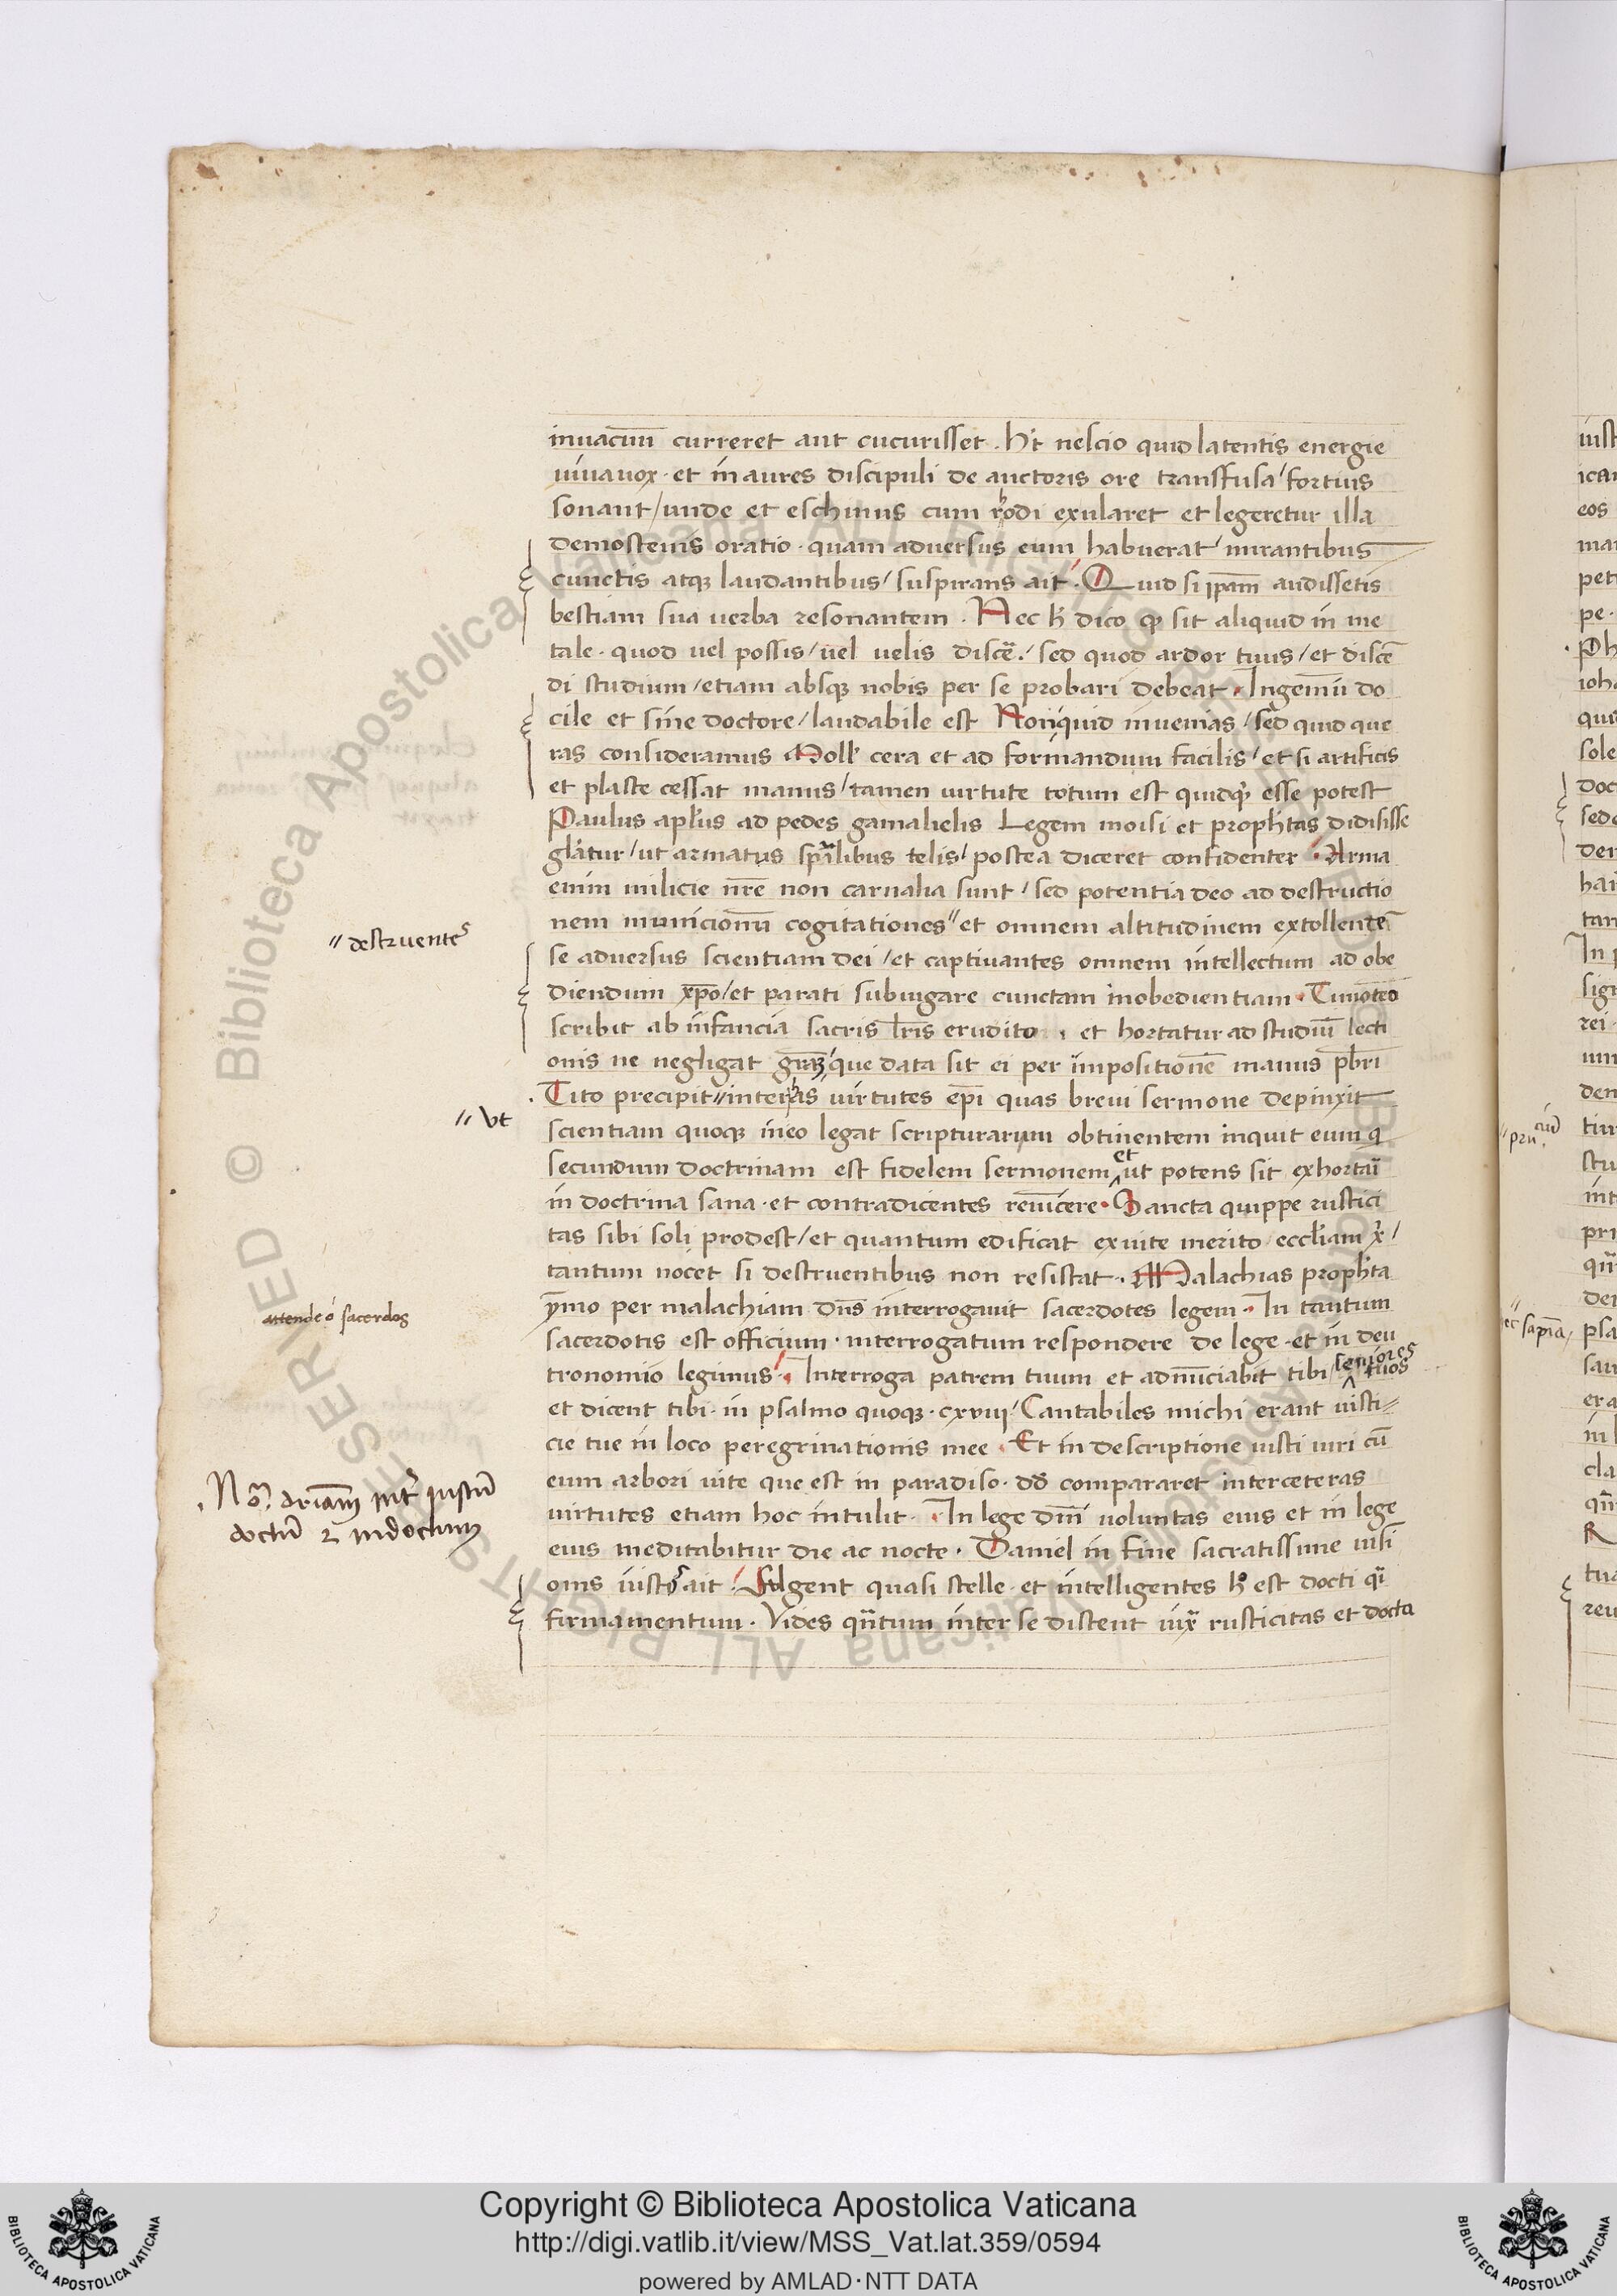 inuacuū curreret aut cucurisset . Ht nescio quid latentis energie
uiuauox · et in aures discipuli de auctoris ore transfusa / fortius
sonant / unde et eschinus cum rhodi exularet et legeretur illa
demostenis oratio · quam aduersus eum habuerat / mirantibus
cunctis atq; laudantibus / suspirans ait · Quid si ip̄am audissetis
bestiam sua uerba resonantem . Hec h̄ dico q sit aliquid in me
tale · quod uel possis / uel uelis discē . / sed quod ardor tuus / et discē
di studium / etiam absq; nobis per se probari debeat · Ingeniū do
cile et sine doctore / laudabile est Non quid inuenias / sed quid que
ras consideramus Moll' cera et ad formandum facilis / et si artificis
et plaste cessat manus / tamen uirtute totum est quidq' esse potest
Paulus apl'us ad pedes gamalielis Legem moisi et proph'tas didisisse
gl'atur / ut armatus sp̄alibus telis / postea diceret confidenter · Arma
enim milicie nr̄e non carnalia sunt / sed potentia deo ad destructio
nem municionū cogitationes // et omnem altitudinem extollente
// destruentes
se aduersus scientiam dei / et captiuantes omnem intellectum ad obe
diendum xp̄o / et parati subiugare cunctam inobedientiam · Timoteo
scribit ab infancia sacris lr̄is erudito · et hortatur ad studiū lecti
onis ne negligat gr̄az / que data sit ei per impositionē manus p̄bri
Tito precipit // inter has uirtutes ep̄i quas breui sermone depinxit
// Vt
scientiam quoq; ineo legat scripturarum obtinentem inquit eum q
secundum doctrinam est fidelem sermonem et ut potens sit exhortari
in doctrina sana · et contradicentes reuīcere · Sancta quippe rustici
tas sibi soli prodest / et quantum edificat exuite merito eccl'iam x' /
tantum nocet si destruentibus non resistat · Malachias proph'ta
ymo per malachiam dn̄s interrogauit sacerdotes legem · In tantum
attende o sacerdos
sacerdotis est officium · interrogatum respondere de lege · et in deu
tronomiio legimus · Interroga patrem tuum et adnūciabit tibi / seniores tuos
et dicent tibi · in psalmo quoq; · cxviij / Cantabiles michi erant iusti
cie tue in loco peregrinationis mee · Et in descriptione iusti uiri cū
eum arbori uite que est in paradiso · dd compararet interceteras
uirtutes etiam hoc intulit · In lege dn̄i uoluntas eius et in lege
doctū ⁊ indoctum
eius meditabitur die ac nocte · Daniel in fine sacratissime uisi
onis iustos ait / Fulgent quasi stelle · et intelligentes h° est docti q̄i
firmamentum · Vides qn̄tum inter se distent iusta rusticitas et docta
Copyright © Biblioteca Apostolica Vaticana
http://digi.vatlib.it/view/MSS_Vat.lat.359/0594
powered by AMLAD·NTT DATA
BIBLIOTECA APOSTOLICA VATICANA
BIBLIOTECA APOSTOLICA VATICANA